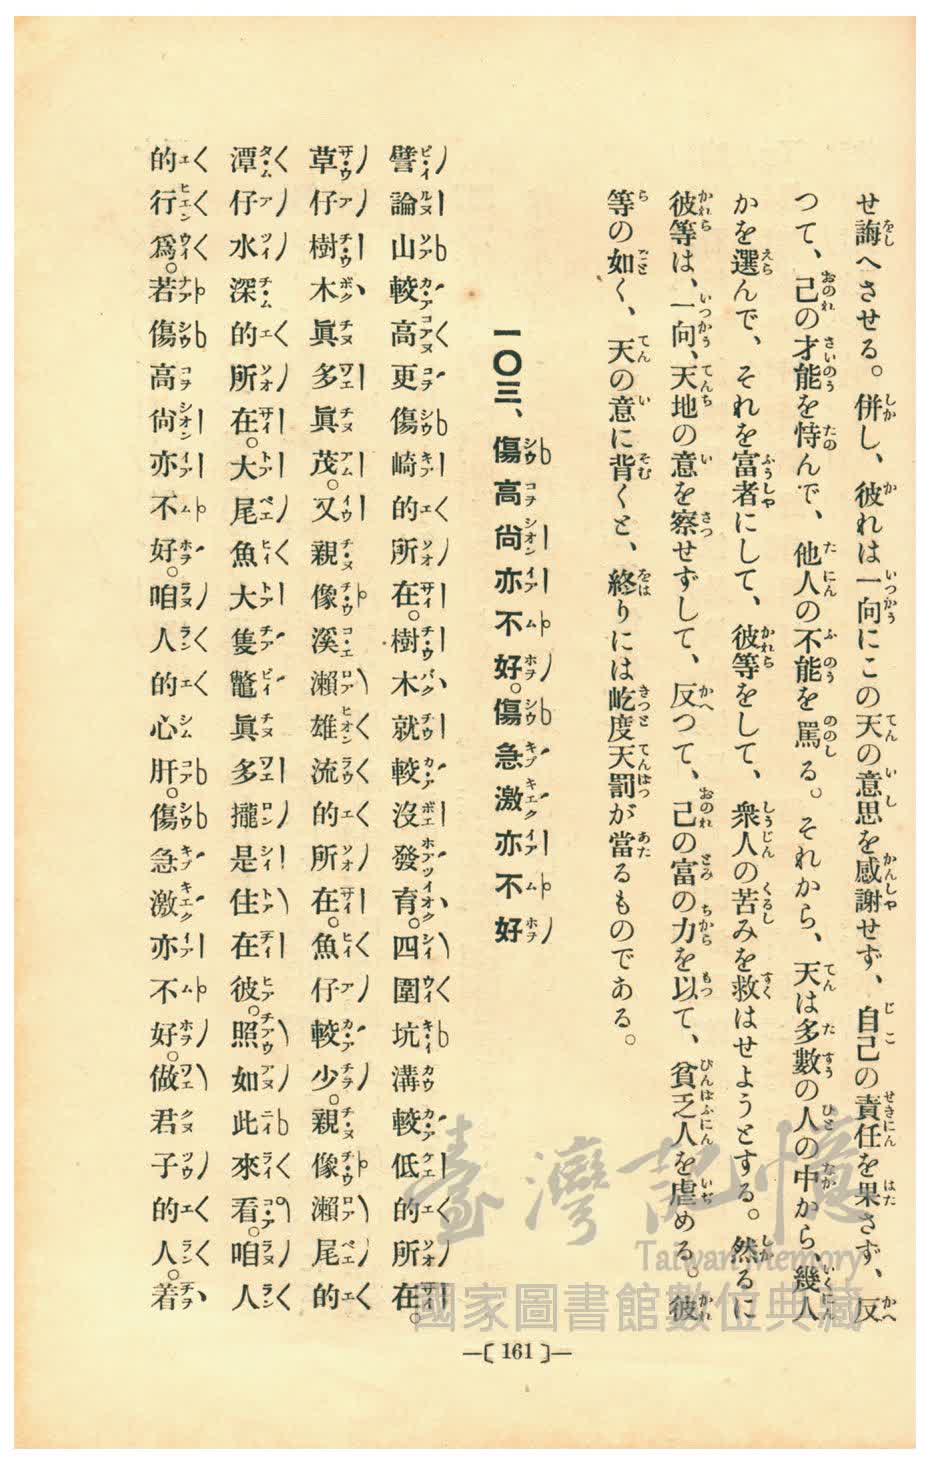 せ誨へさせる。併し、彼れは一向にこの天の意思を感謝せず、自己の責任を果さず、反
つて、己の才能を恃んで、他人の不能を罵る。それから、天は多數の人の中から、幾人
かを選んで、それを富者にして、彼等をして、衆人の苦みを救はせようとする。然るに
彼等は、一向、天地の意を察せずして、反つて、己の富の力を以て、貧乏人を虐める。彼
等の如く、天の意に背くと、終りには屹度天罰が當るものである。
一〇三、傷高尙亦不好。傷急激亦不好
譬論山較高更傷崎的所在。樹木就較沒發育。四圍坑溝較低的所在。
草仔樹木眞多眞茂。又親像溪瀨雄流的所在。魚仔較少。親像瀨尾的
潭仔水深的所在。大尾魚大隻鼈眞多攏是住在彼。照如此來看。咱人
的行爲。若傷高尙亦不好。咱人的心肝傷急激亦不好。做君子的人。着
—〔161〕—
臺灣記憶
Taiwan Memory
國家圖書館數位典藏